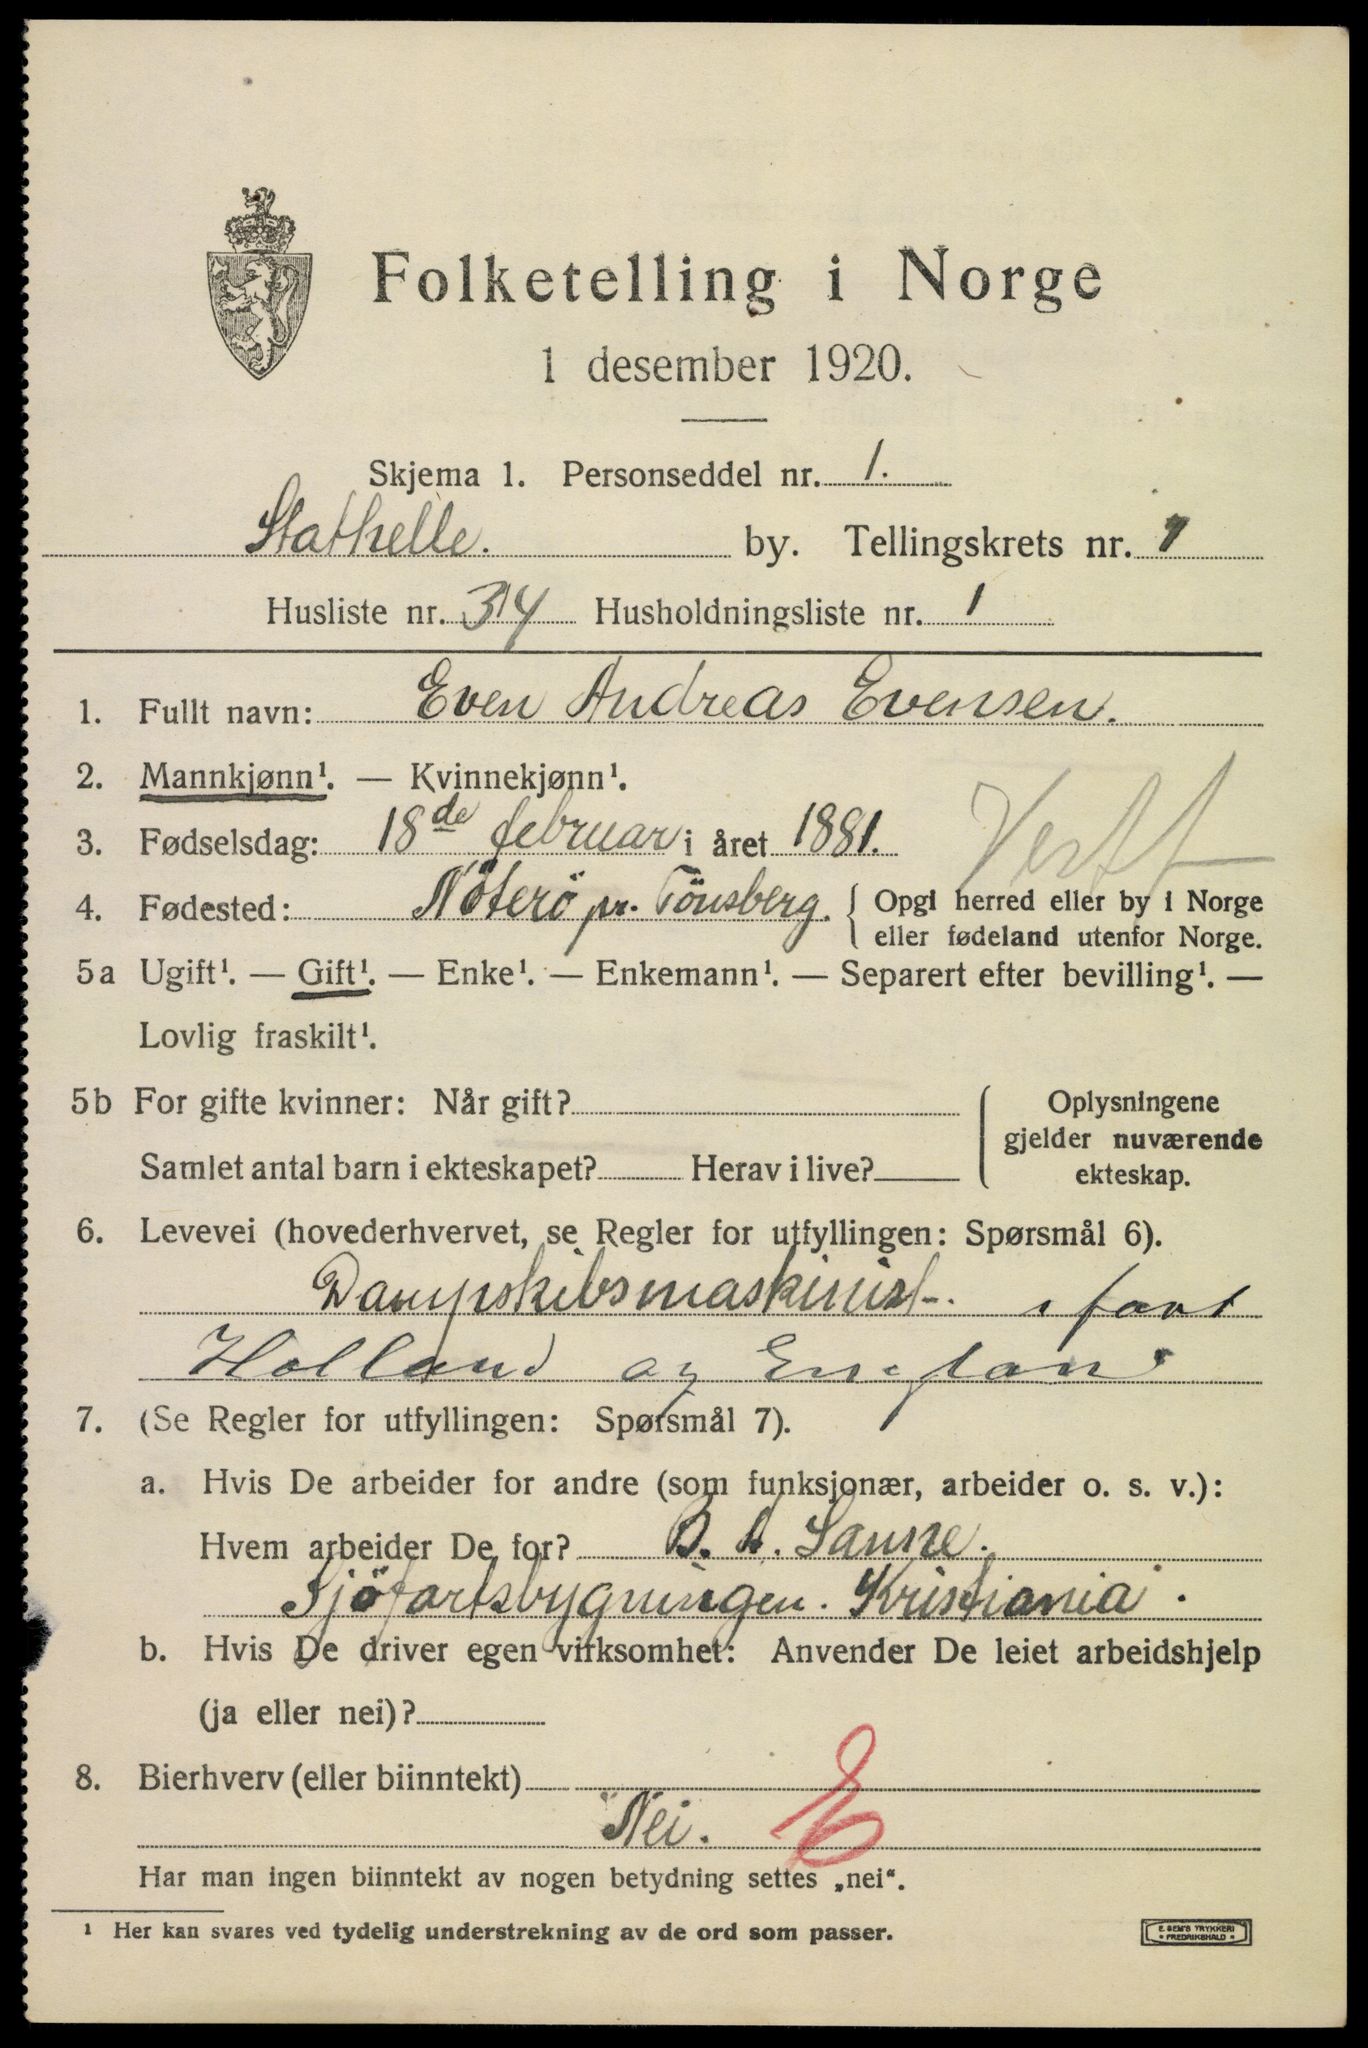 Folketelling i Norge
1 desember 1920.
Skjema 1. Personseddel nr. 1.
Stathelle. by. Tellingskrets nr. 1
Husliste nr. 34 Husholdningsliste nr. 1
1. Fullt navn: Even Andreas Evensen.
2. Mannkjønn¹. — Kvinnekjønn¹.
3. Fødselsdag: 18de februar i året 1881.
Vestf
4. Fødested: Nöterö pr. Tönsberg. Opgi herred eller by i Norge
eller fødeland utenfor Norge.
5a Ugift¹. — Gift¹. — Enke¹. — Enkemann¹. — Separert efter bevilling¹. —
Lovlig fraskilt¹.
5b For gifte kvinner: Når gift? Oplysningene
gjelder nuværende
Samlet antal barn i ekteskapet? Herav i live? ekteskap.
6. Levevei (hovederhvervet, se Regler for utfyllingen: Spørsmål 6).
Dampskibsmaskinist. i fart
Holland og England
7. (Se Regler for utfyllingen: Spørsmål 7).
a. Hvis De arbeider for andre (som funksjonær, arbeider o. s. v.):
Hvem arbeider De for? B. A. Sanne.
Sjöfartsbygningen. Kristiania.
b. Hvis De driver egen virksomhet: Anvender De leiet arbeidshjelp
(ja eller nei)?
8. Bierhverv (eller biinntekt)
Nei. E
Har man ingen biinntekt av nogen betydning settes „nei“.
¹ Her kan svares ved tydelig understrekning av de ord som passer.
E. SEM'S TRYKKERI
FREDRIKSHALD